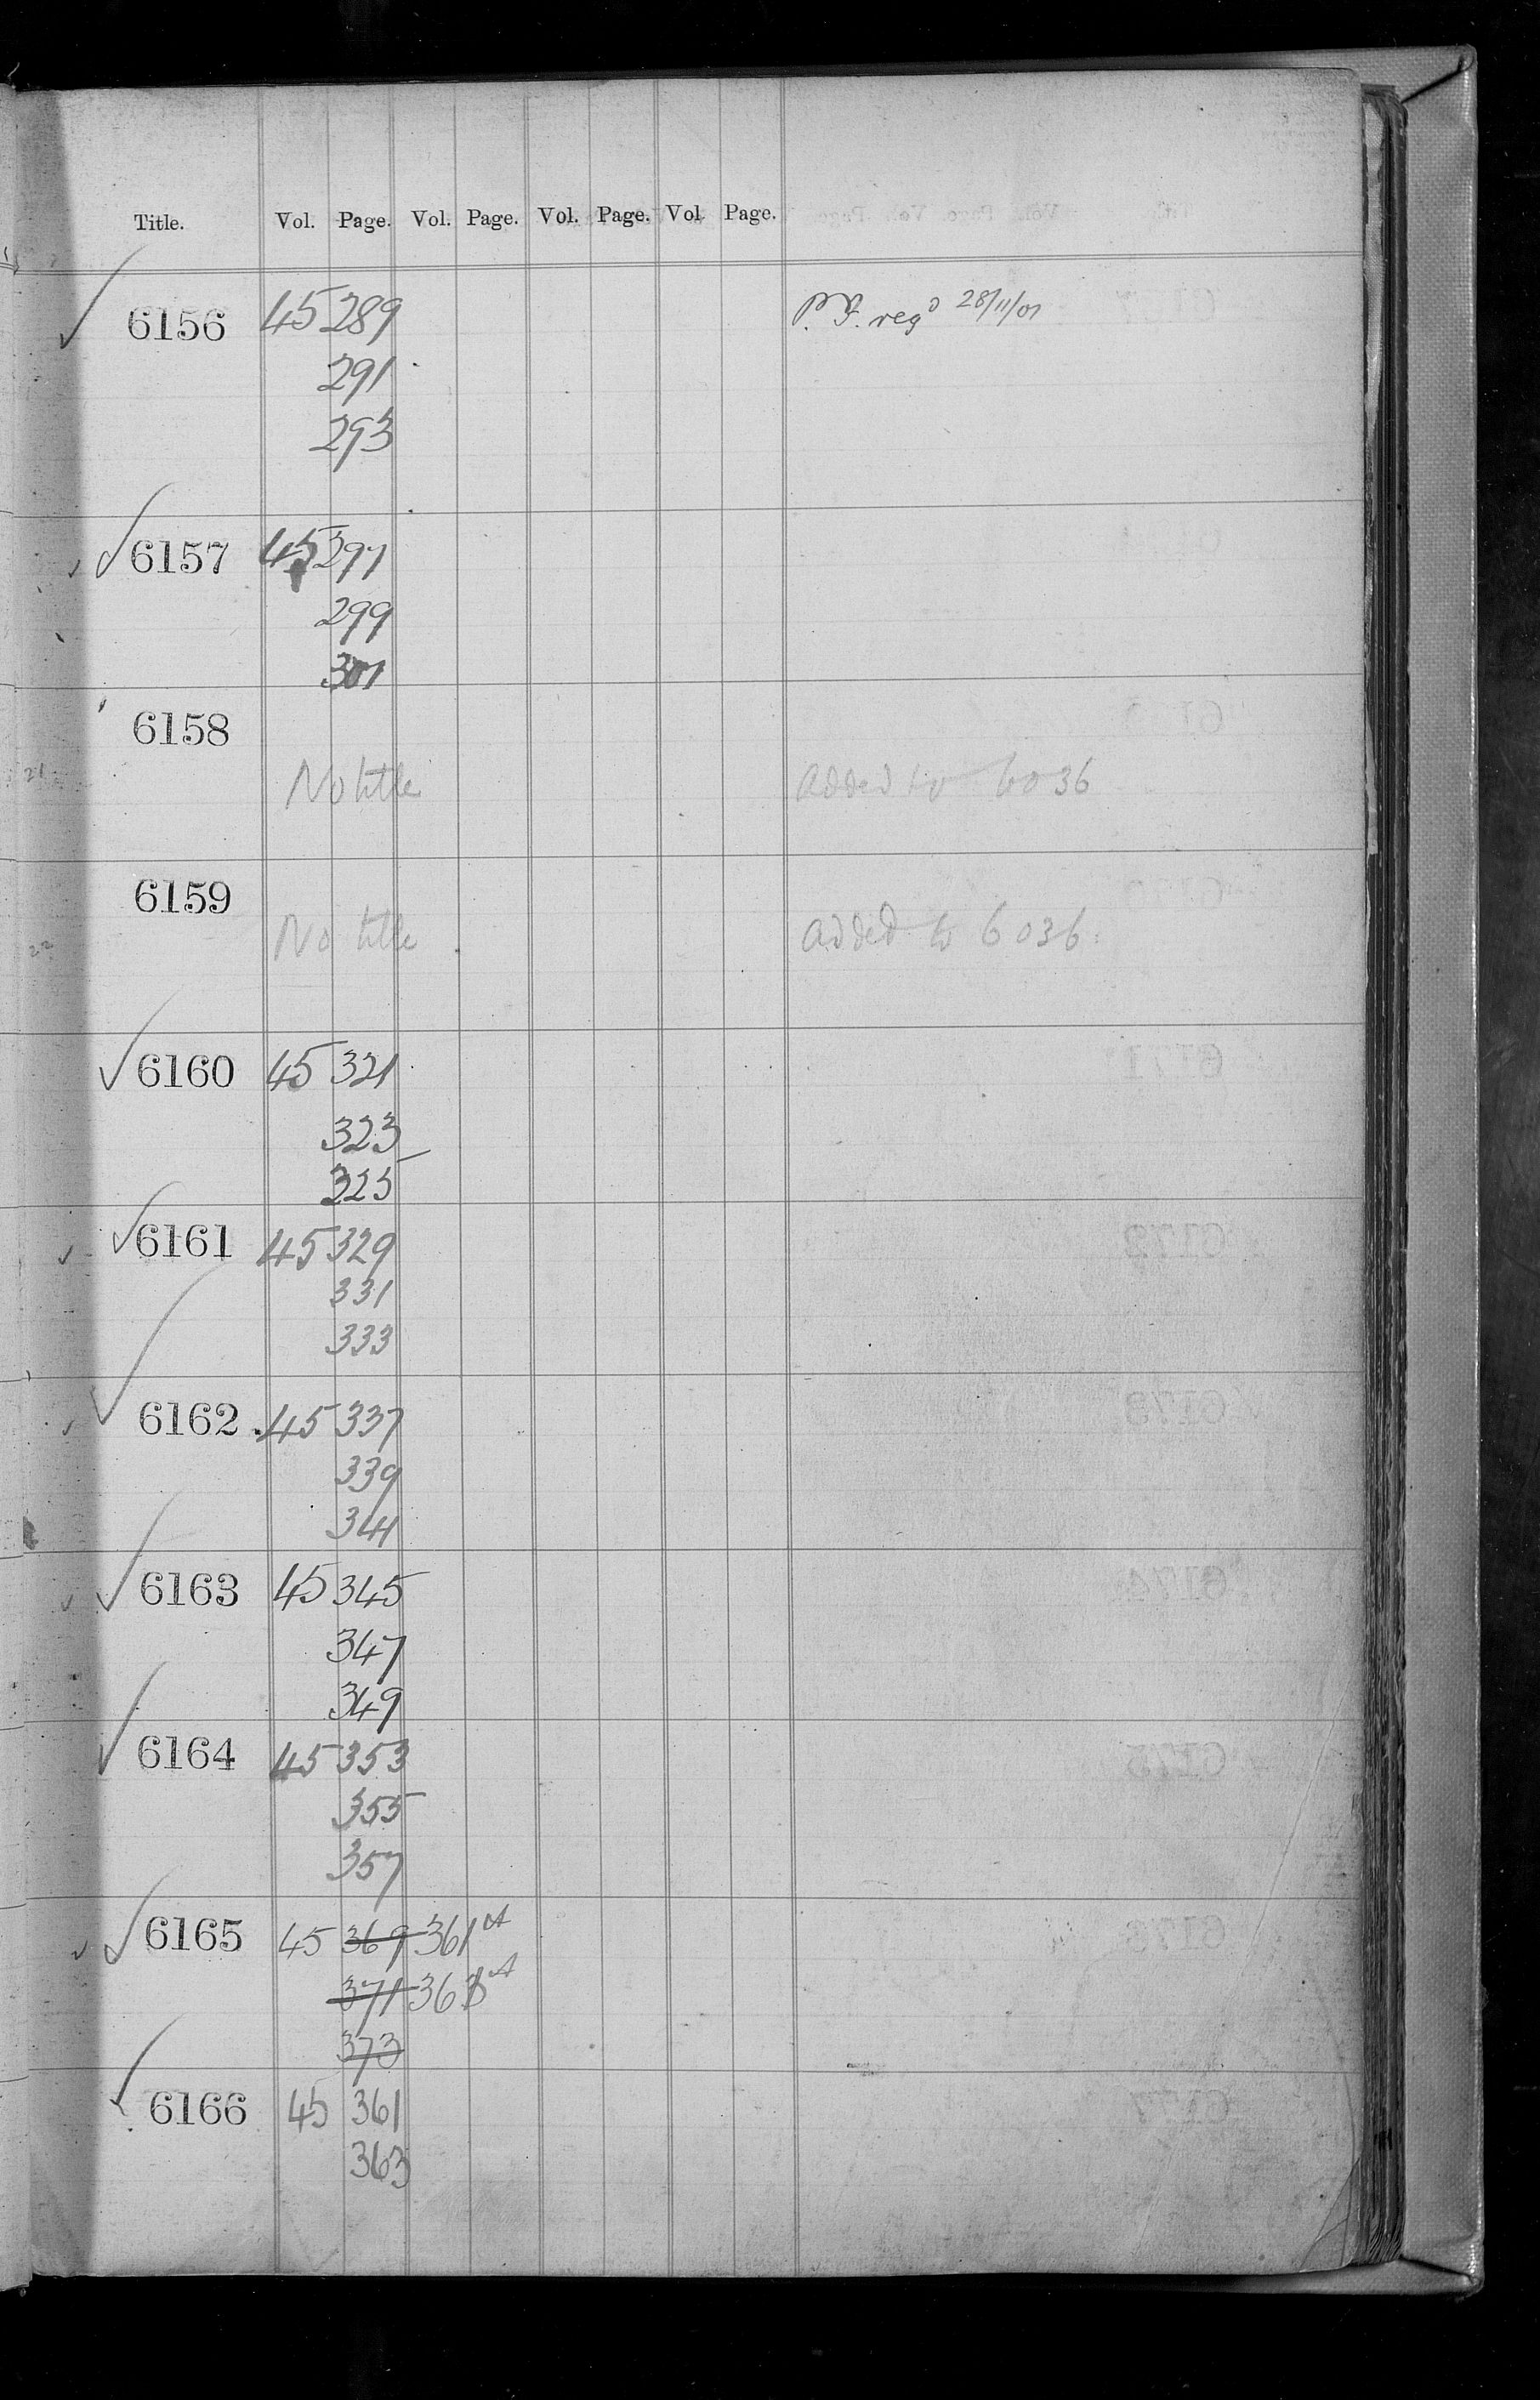 Title. Vol. Page. Vol. Page. Vol. Page. Vol. Page.
6156 45 289 P.F. regd 28/11/01
291
293
6157 45 297
299
301
6158
No title Added to 6036
6159
No title Added to 6036
6160 45 321
323
325
6161 45 329
331
333
6162 45 337
339
341
6163 45 345
347
349
6164 45 353
355
357
6165 45 369 361A
371 363A
373
6166 45 361
363